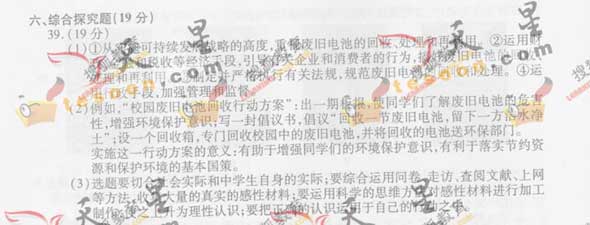 六、综合探究题(19分)
39.(19分)
(1)①从可持续发展战略的高度,重视废旧电池的回收、处理和再利用。②运用财
税收等经济手段,引导有关企业和消费者的行为,废旧电池
处理和再利用。严格执行有关法规,规范废旧电池和处理。④运
用手段,加强管理和监督。
(2)例如,“校园废旧电池回收行动方案”:出一期板报,使同学们了解废旧电池的危害
性,增强环境保护意识;写一封倡议书,倡议“回收一节废旧电池,留下一方洛水净
土”;设一个回收箱,专门回收校园中的废旧电池,并将回收的电池送环保部门。
实施这一行动方案的意义:有助于增强同学们的环境保护意识,有利于落实节约资
源和保护环境的基本国策。
(3)选题要切合社会实际和中学生自身的实际;要综合运用问卷、走访、查阅文献、上网
等方法,收集大量的真实的感性材料;要运用科学的思维方法对感性材料进行加工
制作,使之上升为理性认识;要把正确的认识运用于自己的行动之中。
天星
tesoon.com
天星
tesoon.com
天星
tesoon.com